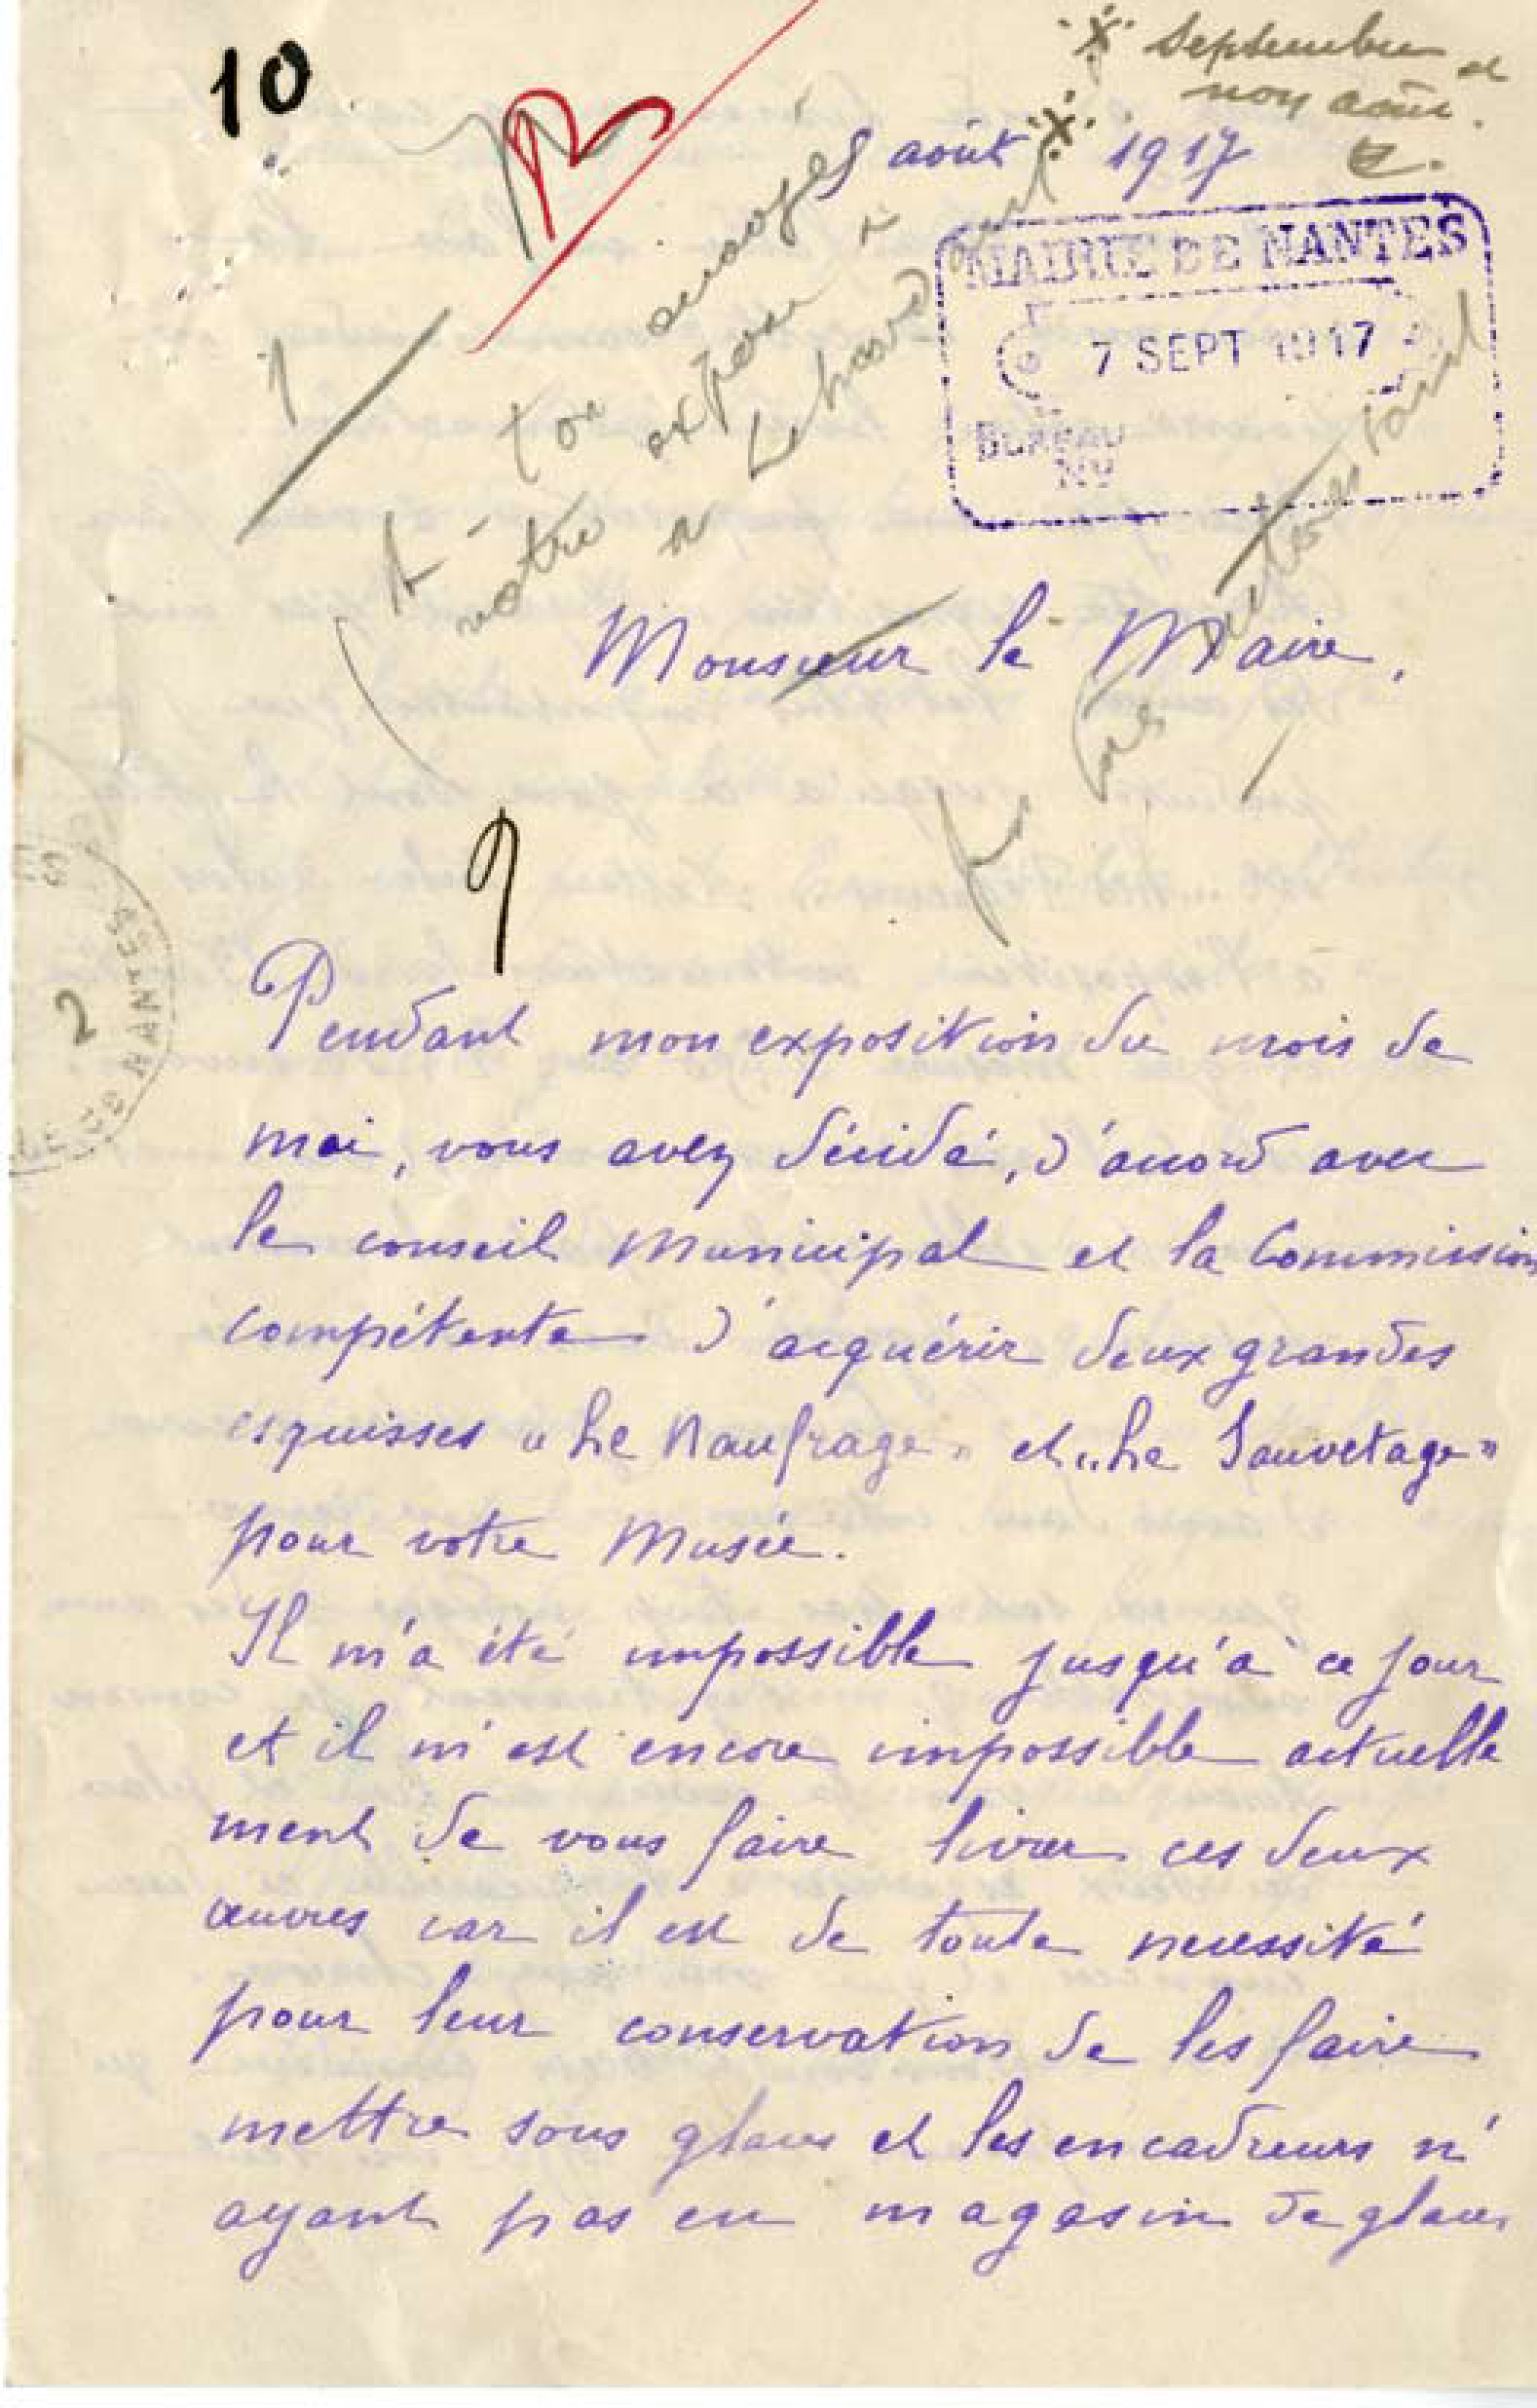 10
.x. Septembre et
non août.
5 août .x. 1917
MAIRIE DE NANTES
7 SEPT 1917
BUREAU
No
1
votre
exposer
Monsieur le Maire,
9
2
NANTES
Pendant mon exposition du mois de
mai, vous avez décidé, d'accord avec
le conseil Municipal et la Commission
compétente d'acquérir deux grandes
esquisses "Le Naufrage" et "Le Sauvetage"
pour votre Musée.
Il m'a été impossible jusqu'à ce jour
et il m'est encore impossible actuelle
ment de vous faire livrer ces deux
œuvres car il est de toute necessité
pour leur conservation de les faire
mettre sous glaces et les encadreurs n'
ayant pas en magasin de glaces